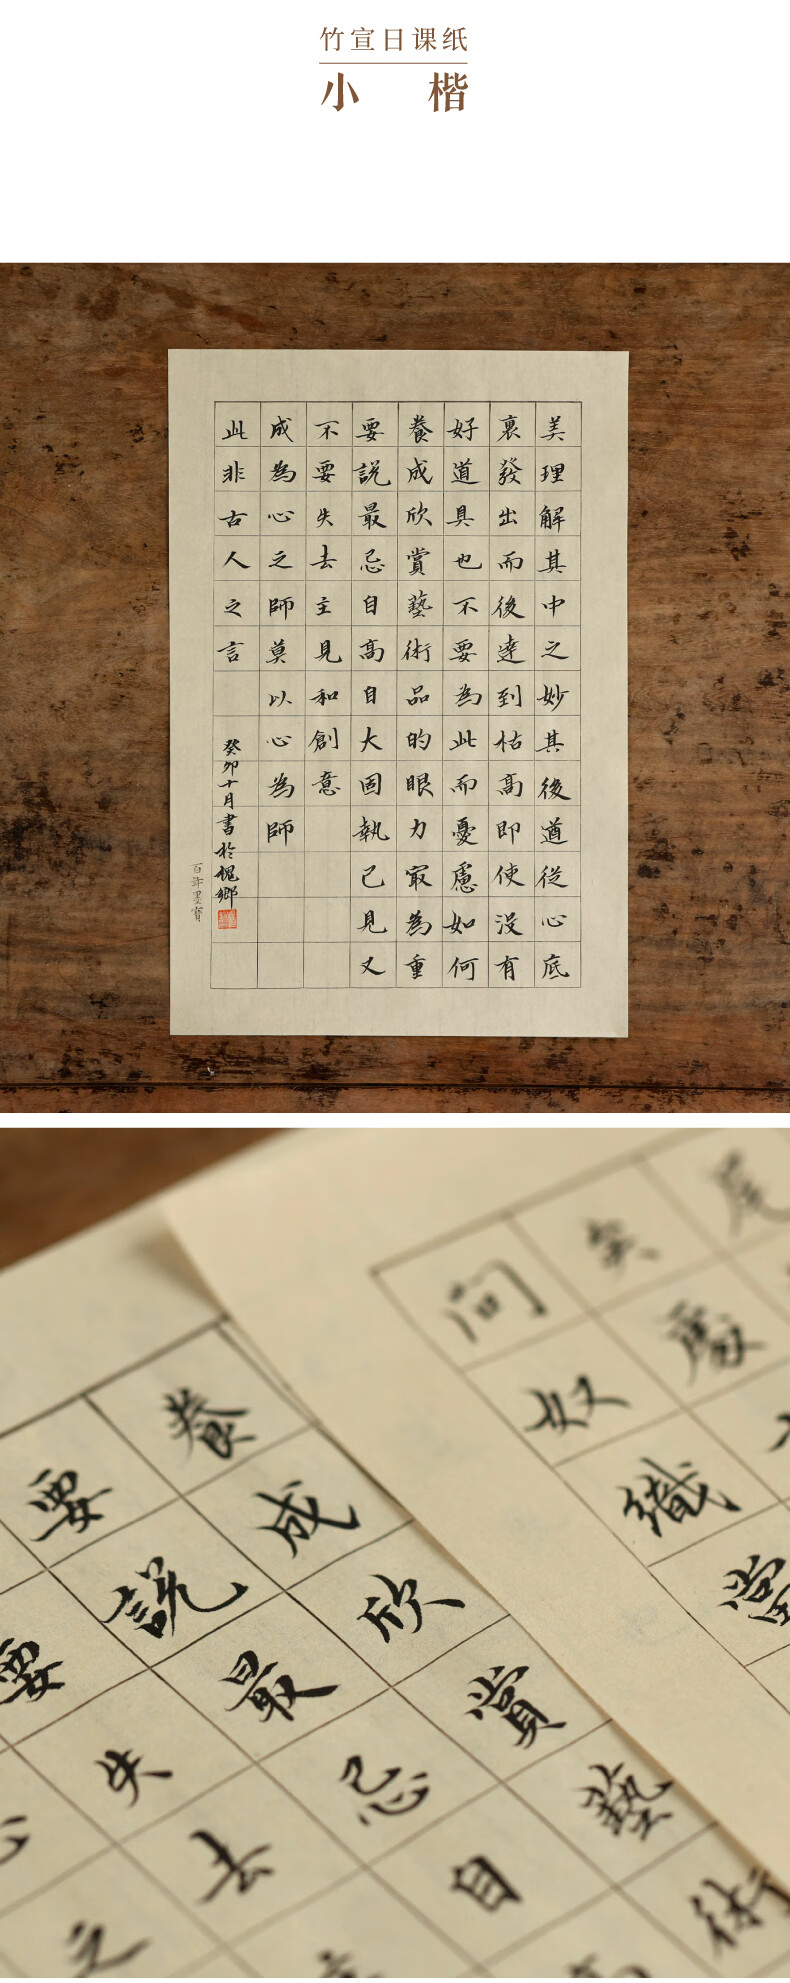 竹宣日课纸
小楷
美理解其中之妙其後道從心底
裏發出而後達到枯高即使沒有
好道具也不要為此而憂慮如何
養成欣賞藝術品的眼力宷為重
要說最忌自高自大固執己見又
不要失去主見和創意
成為心之師莫以心為師
此非古人之言
癸卯十月書於槐鄉
百年墨寶
養成欣賞藝術
要說最忌自
要失去
心之
問奴織當
矣處
尾